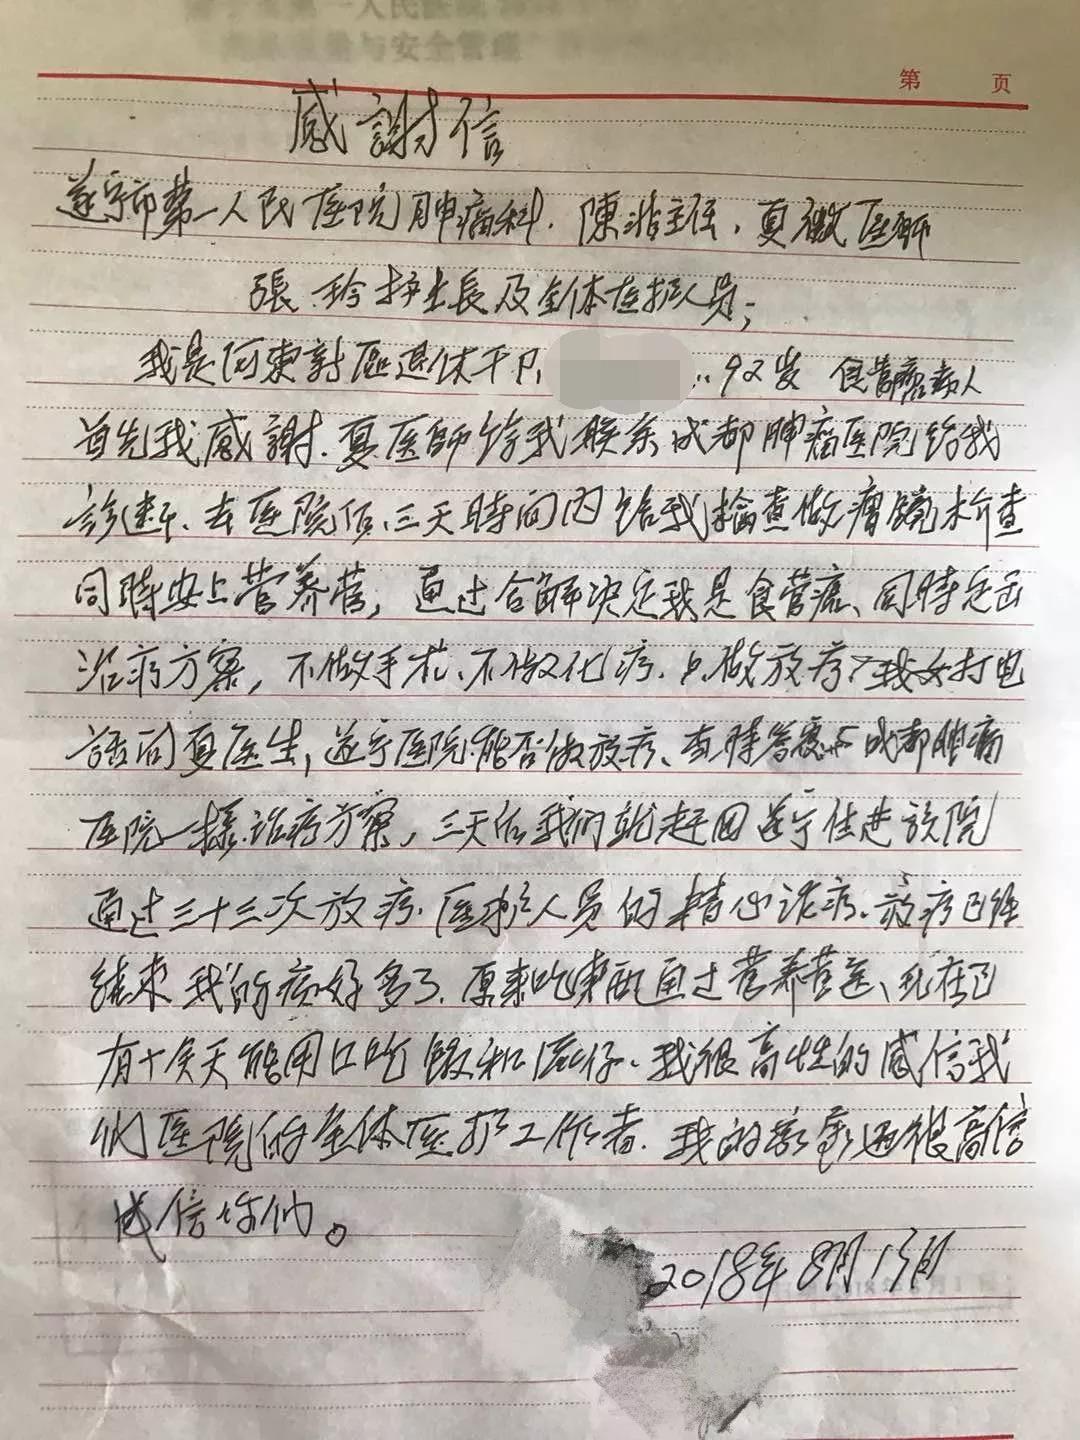 第 页
感謝信
遂宁市第一人民医院肿瘤科.陳浩主任、夏微医師
張玲护士長及全体医护人员;
我是河東新區退休干部 92岁 食管癌病人
首先我感謝.夏医師给我联系成都肿瘤医院给我
診断、去医院后、三天時间内给我檢查做胃鏡检查
同時安上营养管,通过会解决定我是食管癌、同時定出
治疗方案,不做手术、不做化疗.只做放疗,我女打电
話问夏医生,遂宁医院能否做放疗、当時答應与成都肿瘤
医院一樣治疗方案,三天后我们就赶回遂宁住進該院
通过三十三次放疗.医护人员的精心治疗、放疗已经
結束我的病好多了.原来吃東西通过营养管送、現在已
有十余天能用口吃饭和流仔.我很高性的感信我
们医院的全体医护工作者.我的家属也很高信
感信你们。
2018年8月13日